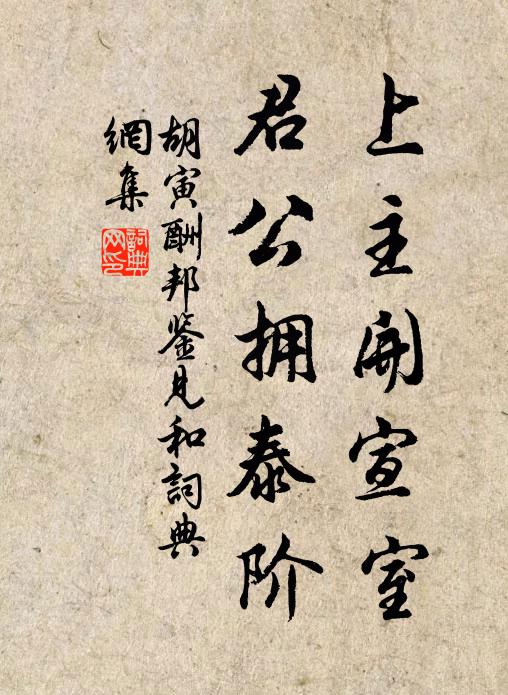 上主開宣室
君公拥泰阶
胡寅酬邦鉴见和詞典
網集
詞典
网印